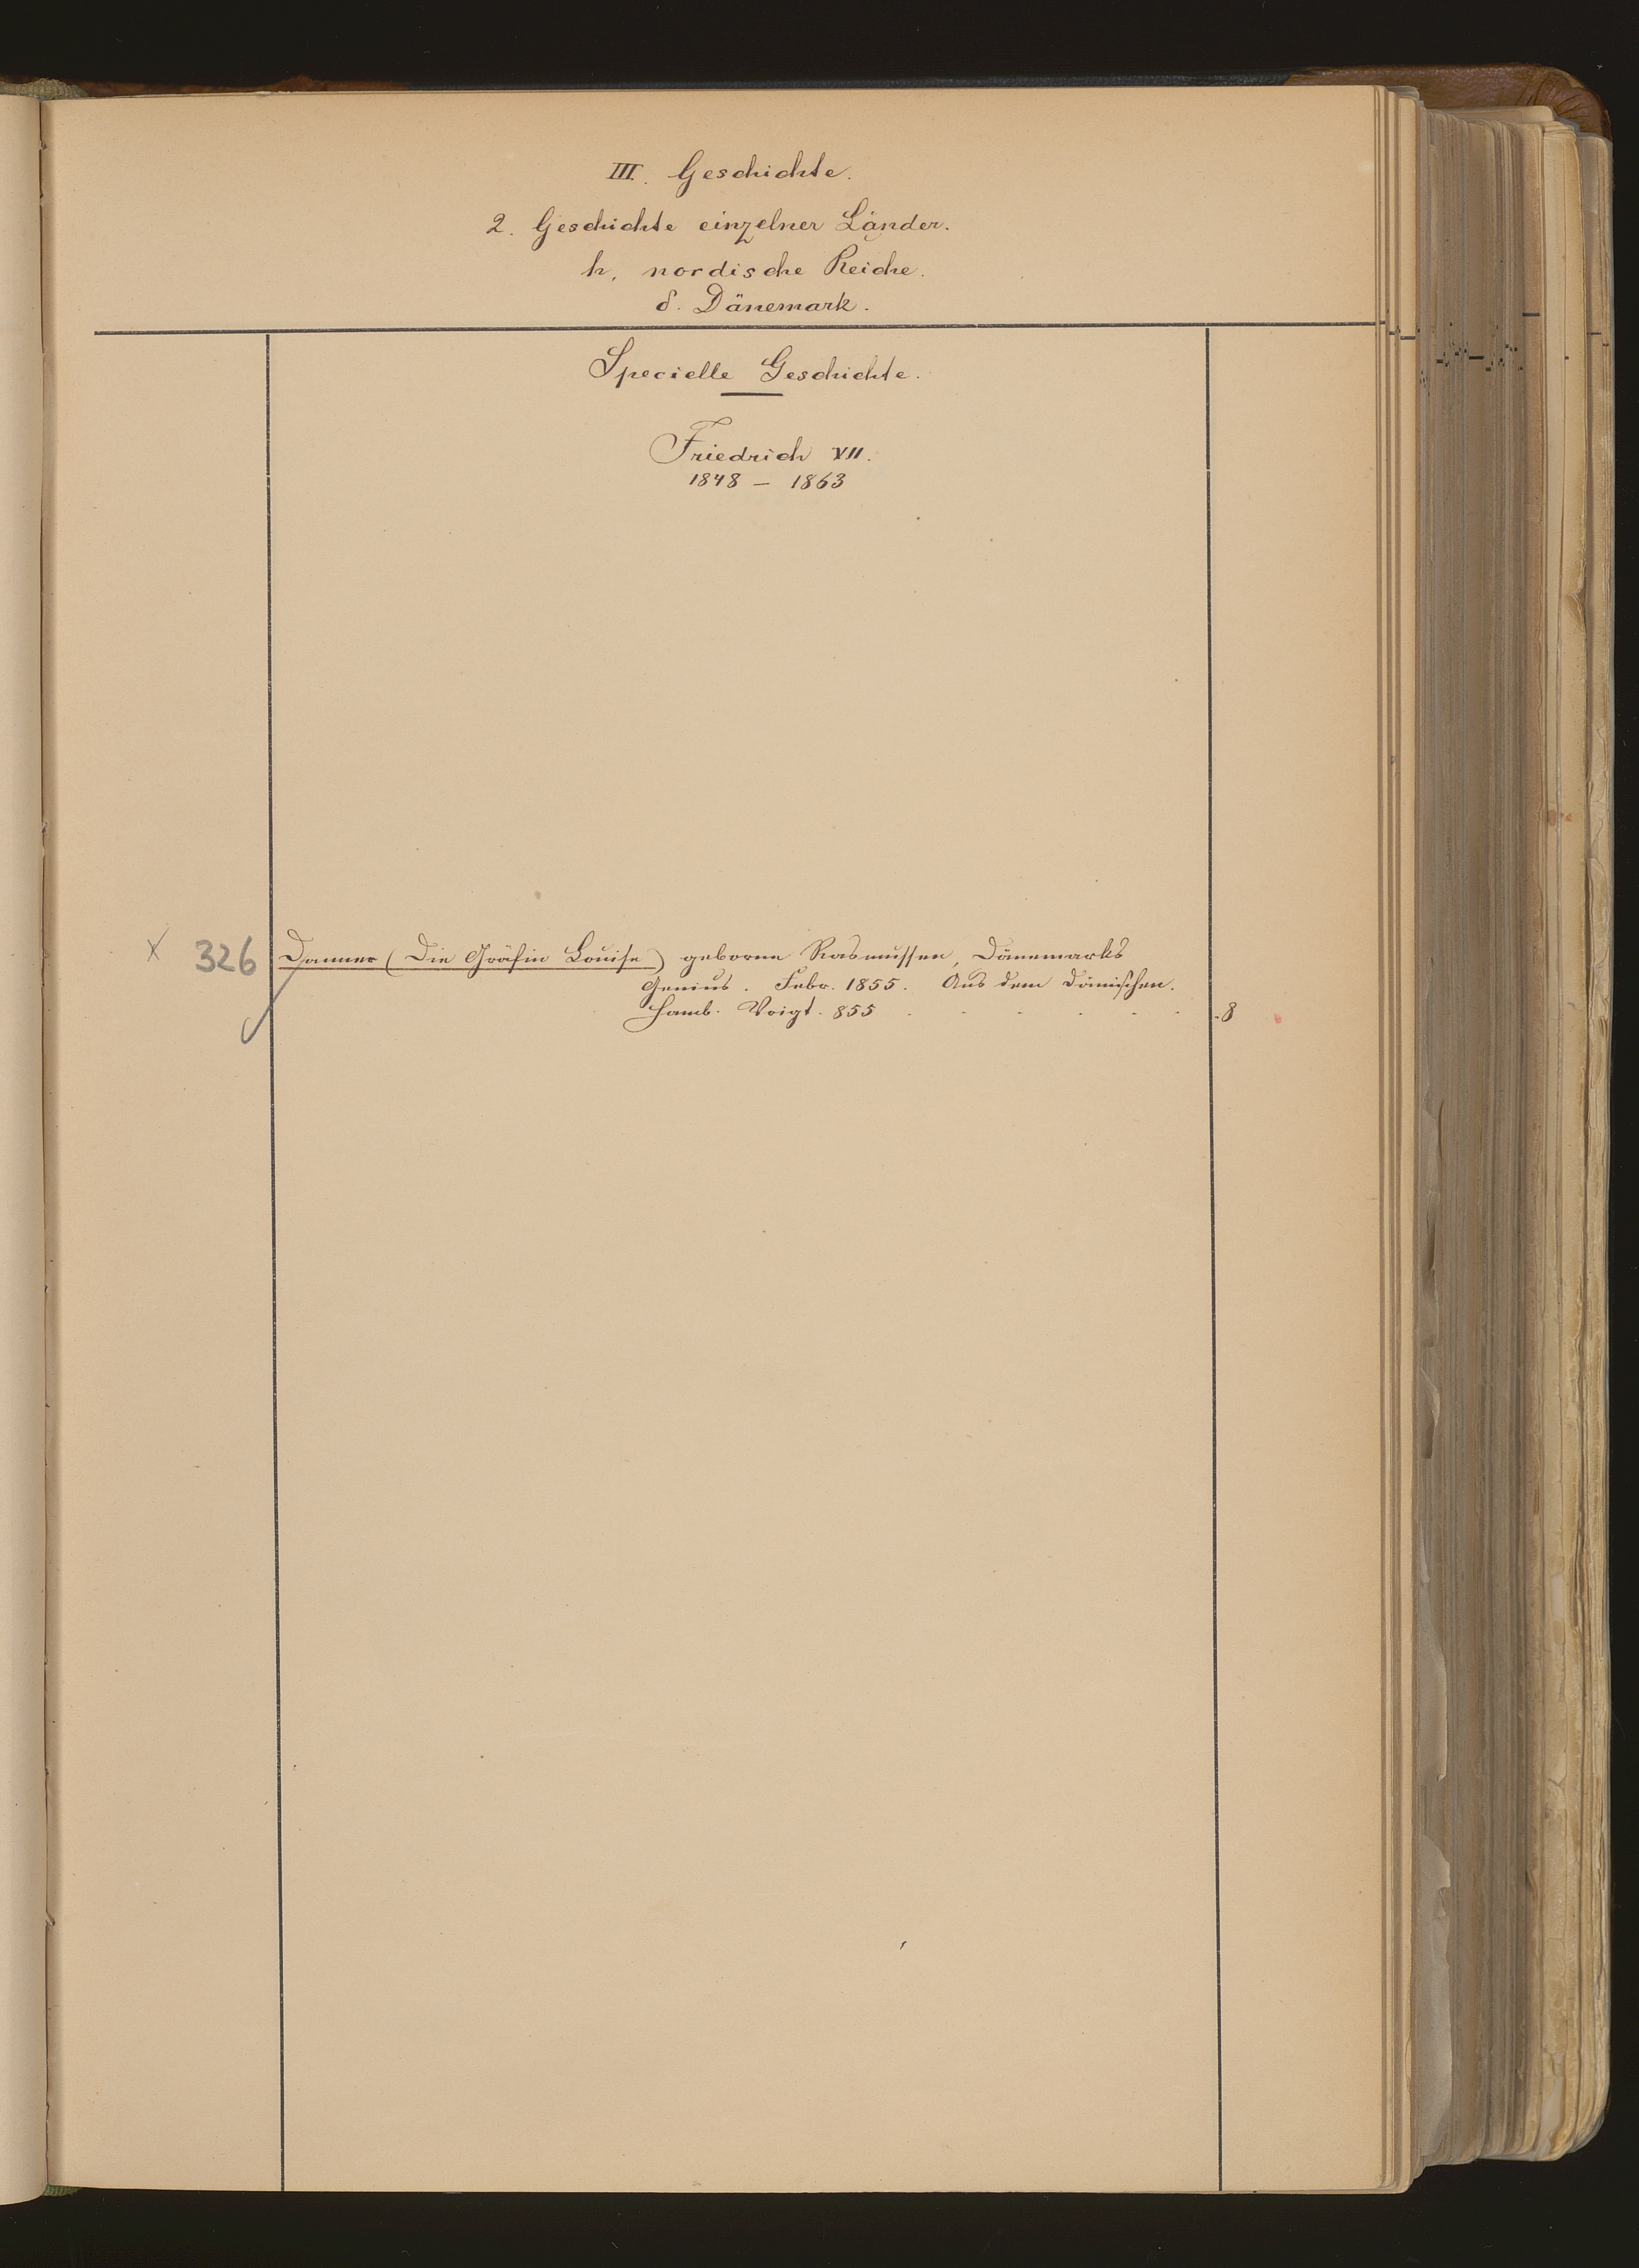 III. Geschichte.
2. Geschichte einzelner Länder.
h. nordische Reiche.
δ. Dänemark.
Specielle Geschichte.
Friedrich VII.
1848 – 1863
x 326 Danner (Die Gräfin Louise) geborne Rasmussen, Dänemarks
Genius. Febr. 1855. Aus dem Dänischen.
Hamb. Voigt. 855 . . . . . . 8